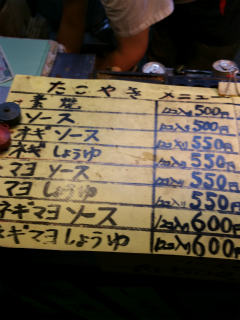 たこやき メニュー
素焼 12コ入り 500円
ソース 12コ入り 500円
ネギソース 12コ入り 550円
ネギしょうゆ 12コ入り 550円
マヨソース 12コ入り 550円
マヨしょうゆ 12コ入り 550円
ネギマヨソース 12コ入り 600円
ネギマヨしょうゆ 12コ入り 600円